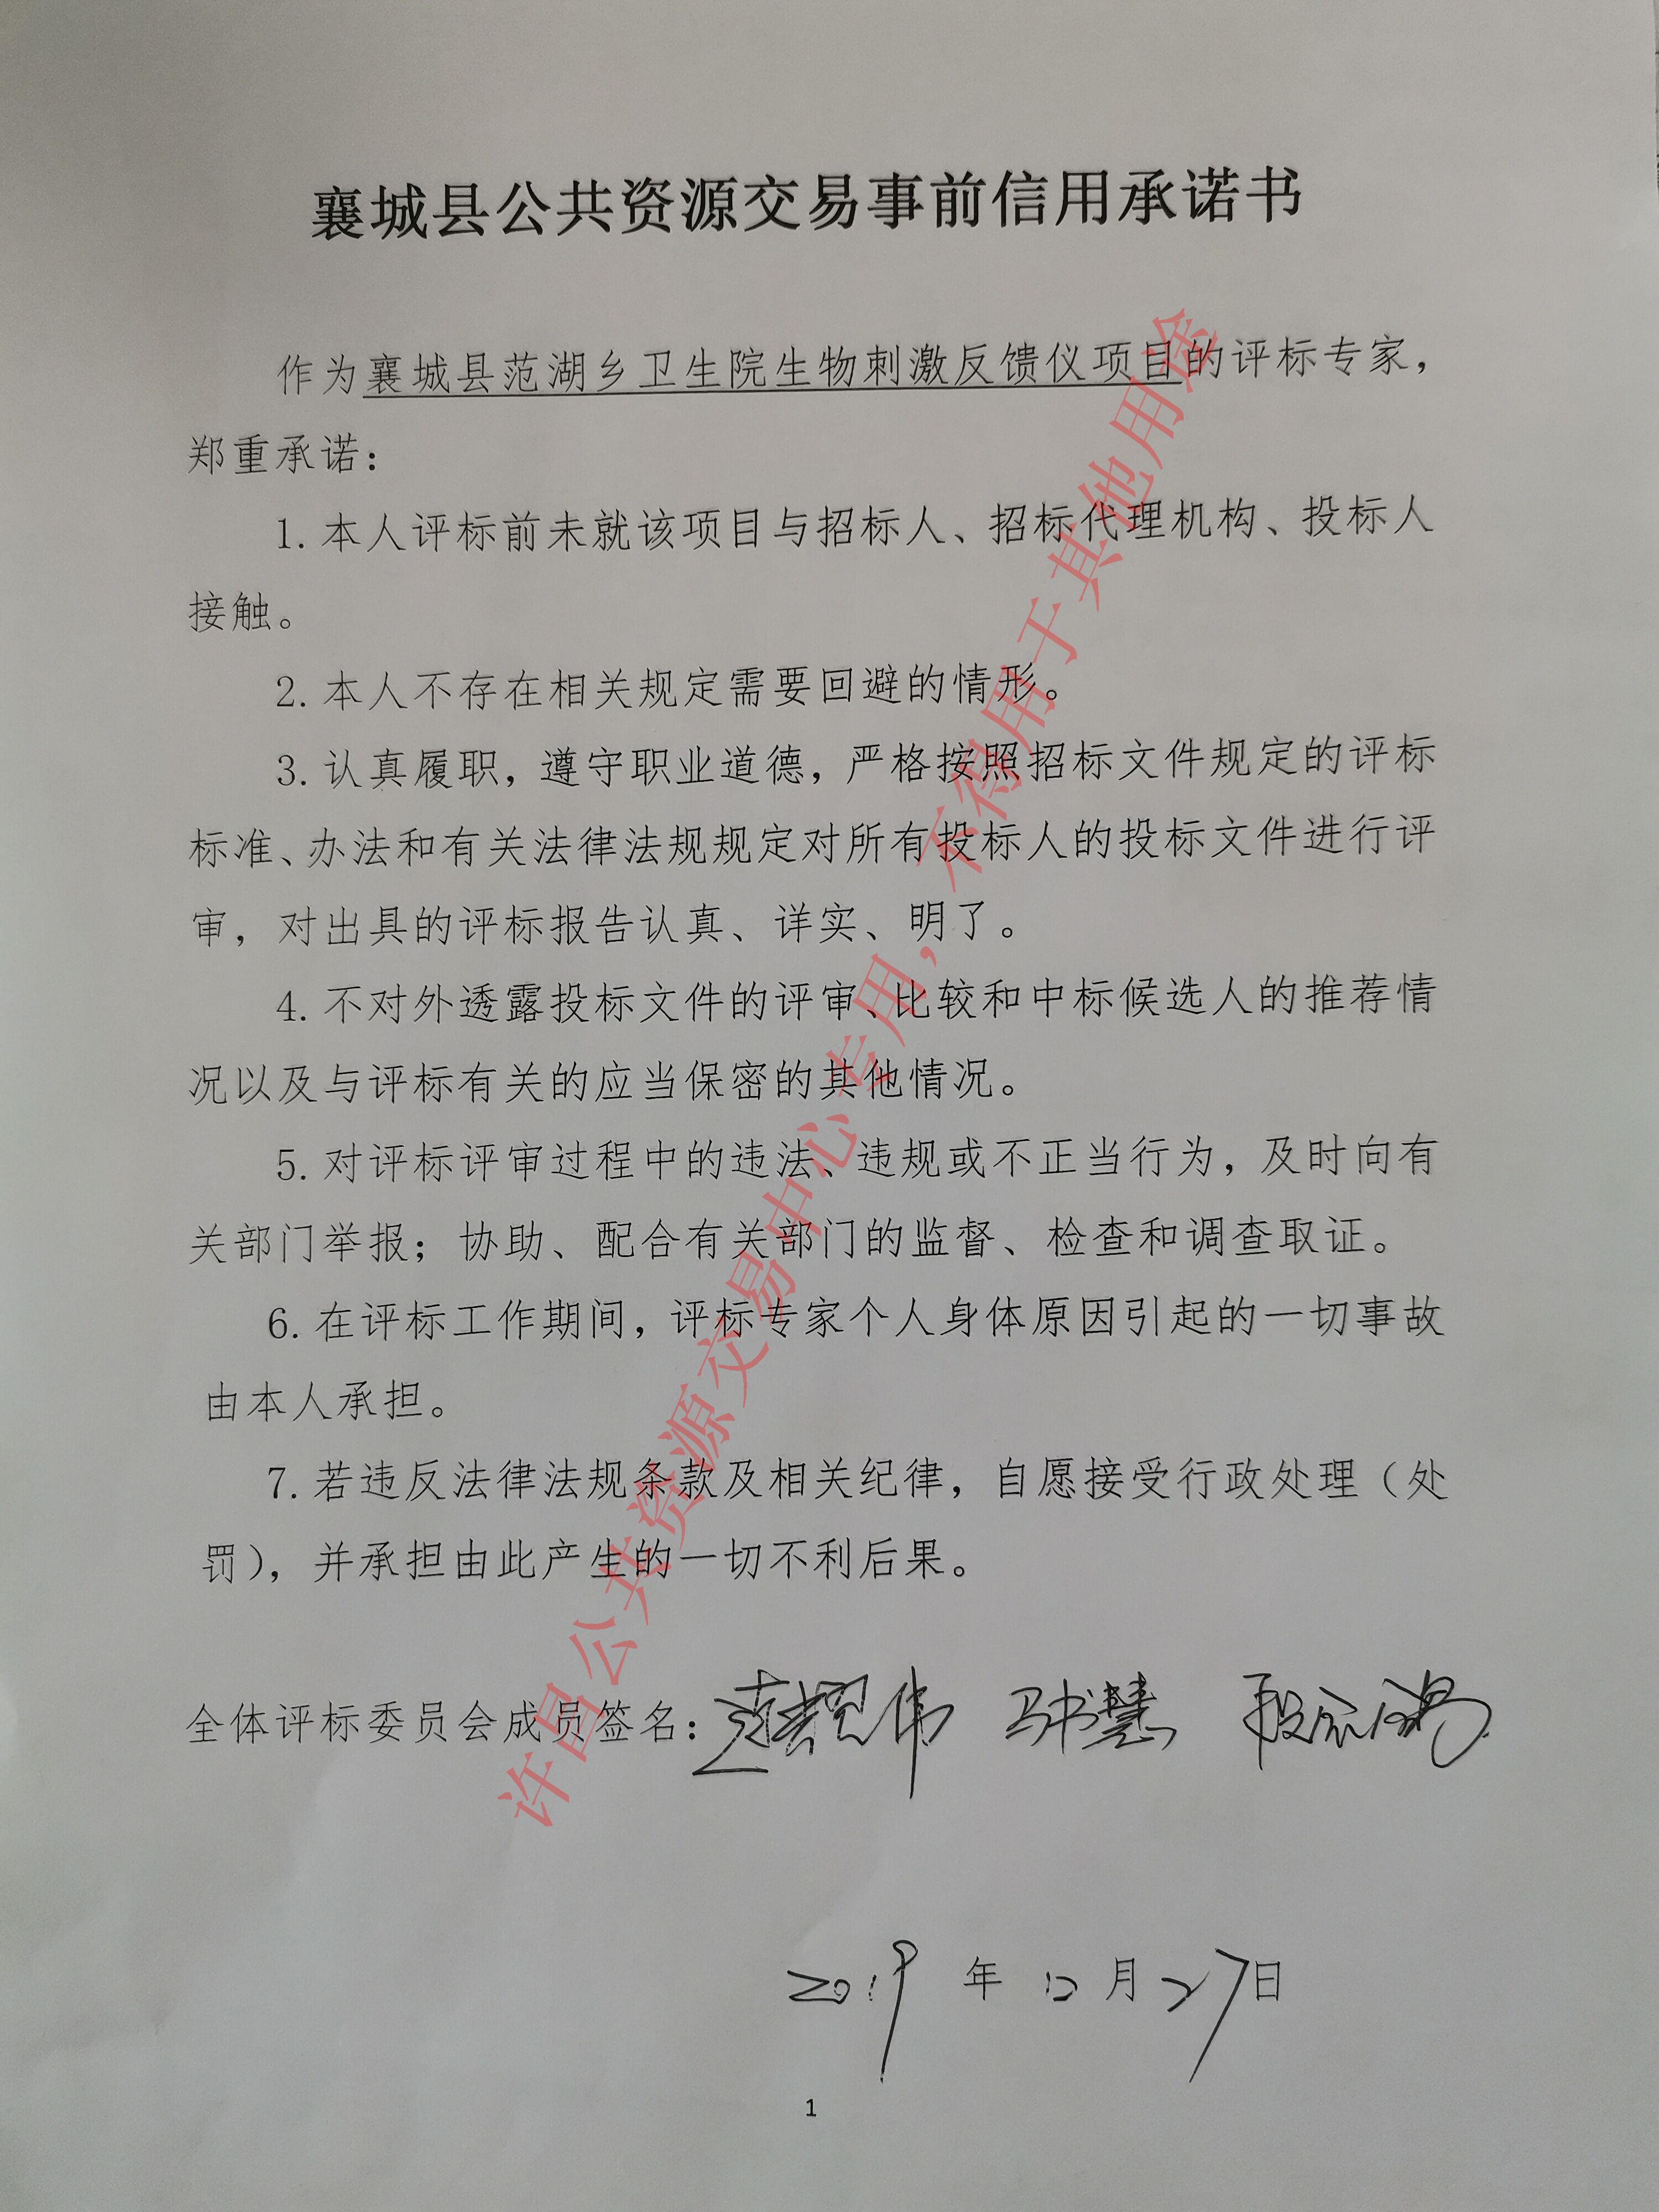 襄城县公共资源交易事前信用承诺书
作为襄城县范湖乡卫生院生物刺激反馈仪项目的评标专家，
郑重承诺：
1. 本人评标前未就该项目与招标人、招标代理机构、投标人
接触。
2. 本人不存在相关规定需要回避的情形。
3. 认真履职，遵守职业道德，严格按照招标文件规定的评标
标准、办法和有关法律法规规定对所有投标人的投标文件进行评
审，对出具的评标报告认真、详实、明了。
4. 不对外透露投标文件的评审、比较和中标候选人的推荐情
况以及与评标有关的应当保密的其他情况。
5. 对评标评审过程中的违法、违规或不正当行为，及时向有
关部门举报；协助、配合有关部门的监督、检查和调查取证。
6. 在评标工作期间，评标专家个人身体原因引起的一切事故
由本人承担。
7. 若违反法律法规条款及相关纪律，自愿接受行政处理（处
罚），并承担由此产生的一切不利后果。
全体评标委员会成员签名： 马书慧
2019 年 12 月 27 日
1
许昌公共资源交易中心专用，不得用于其他用途